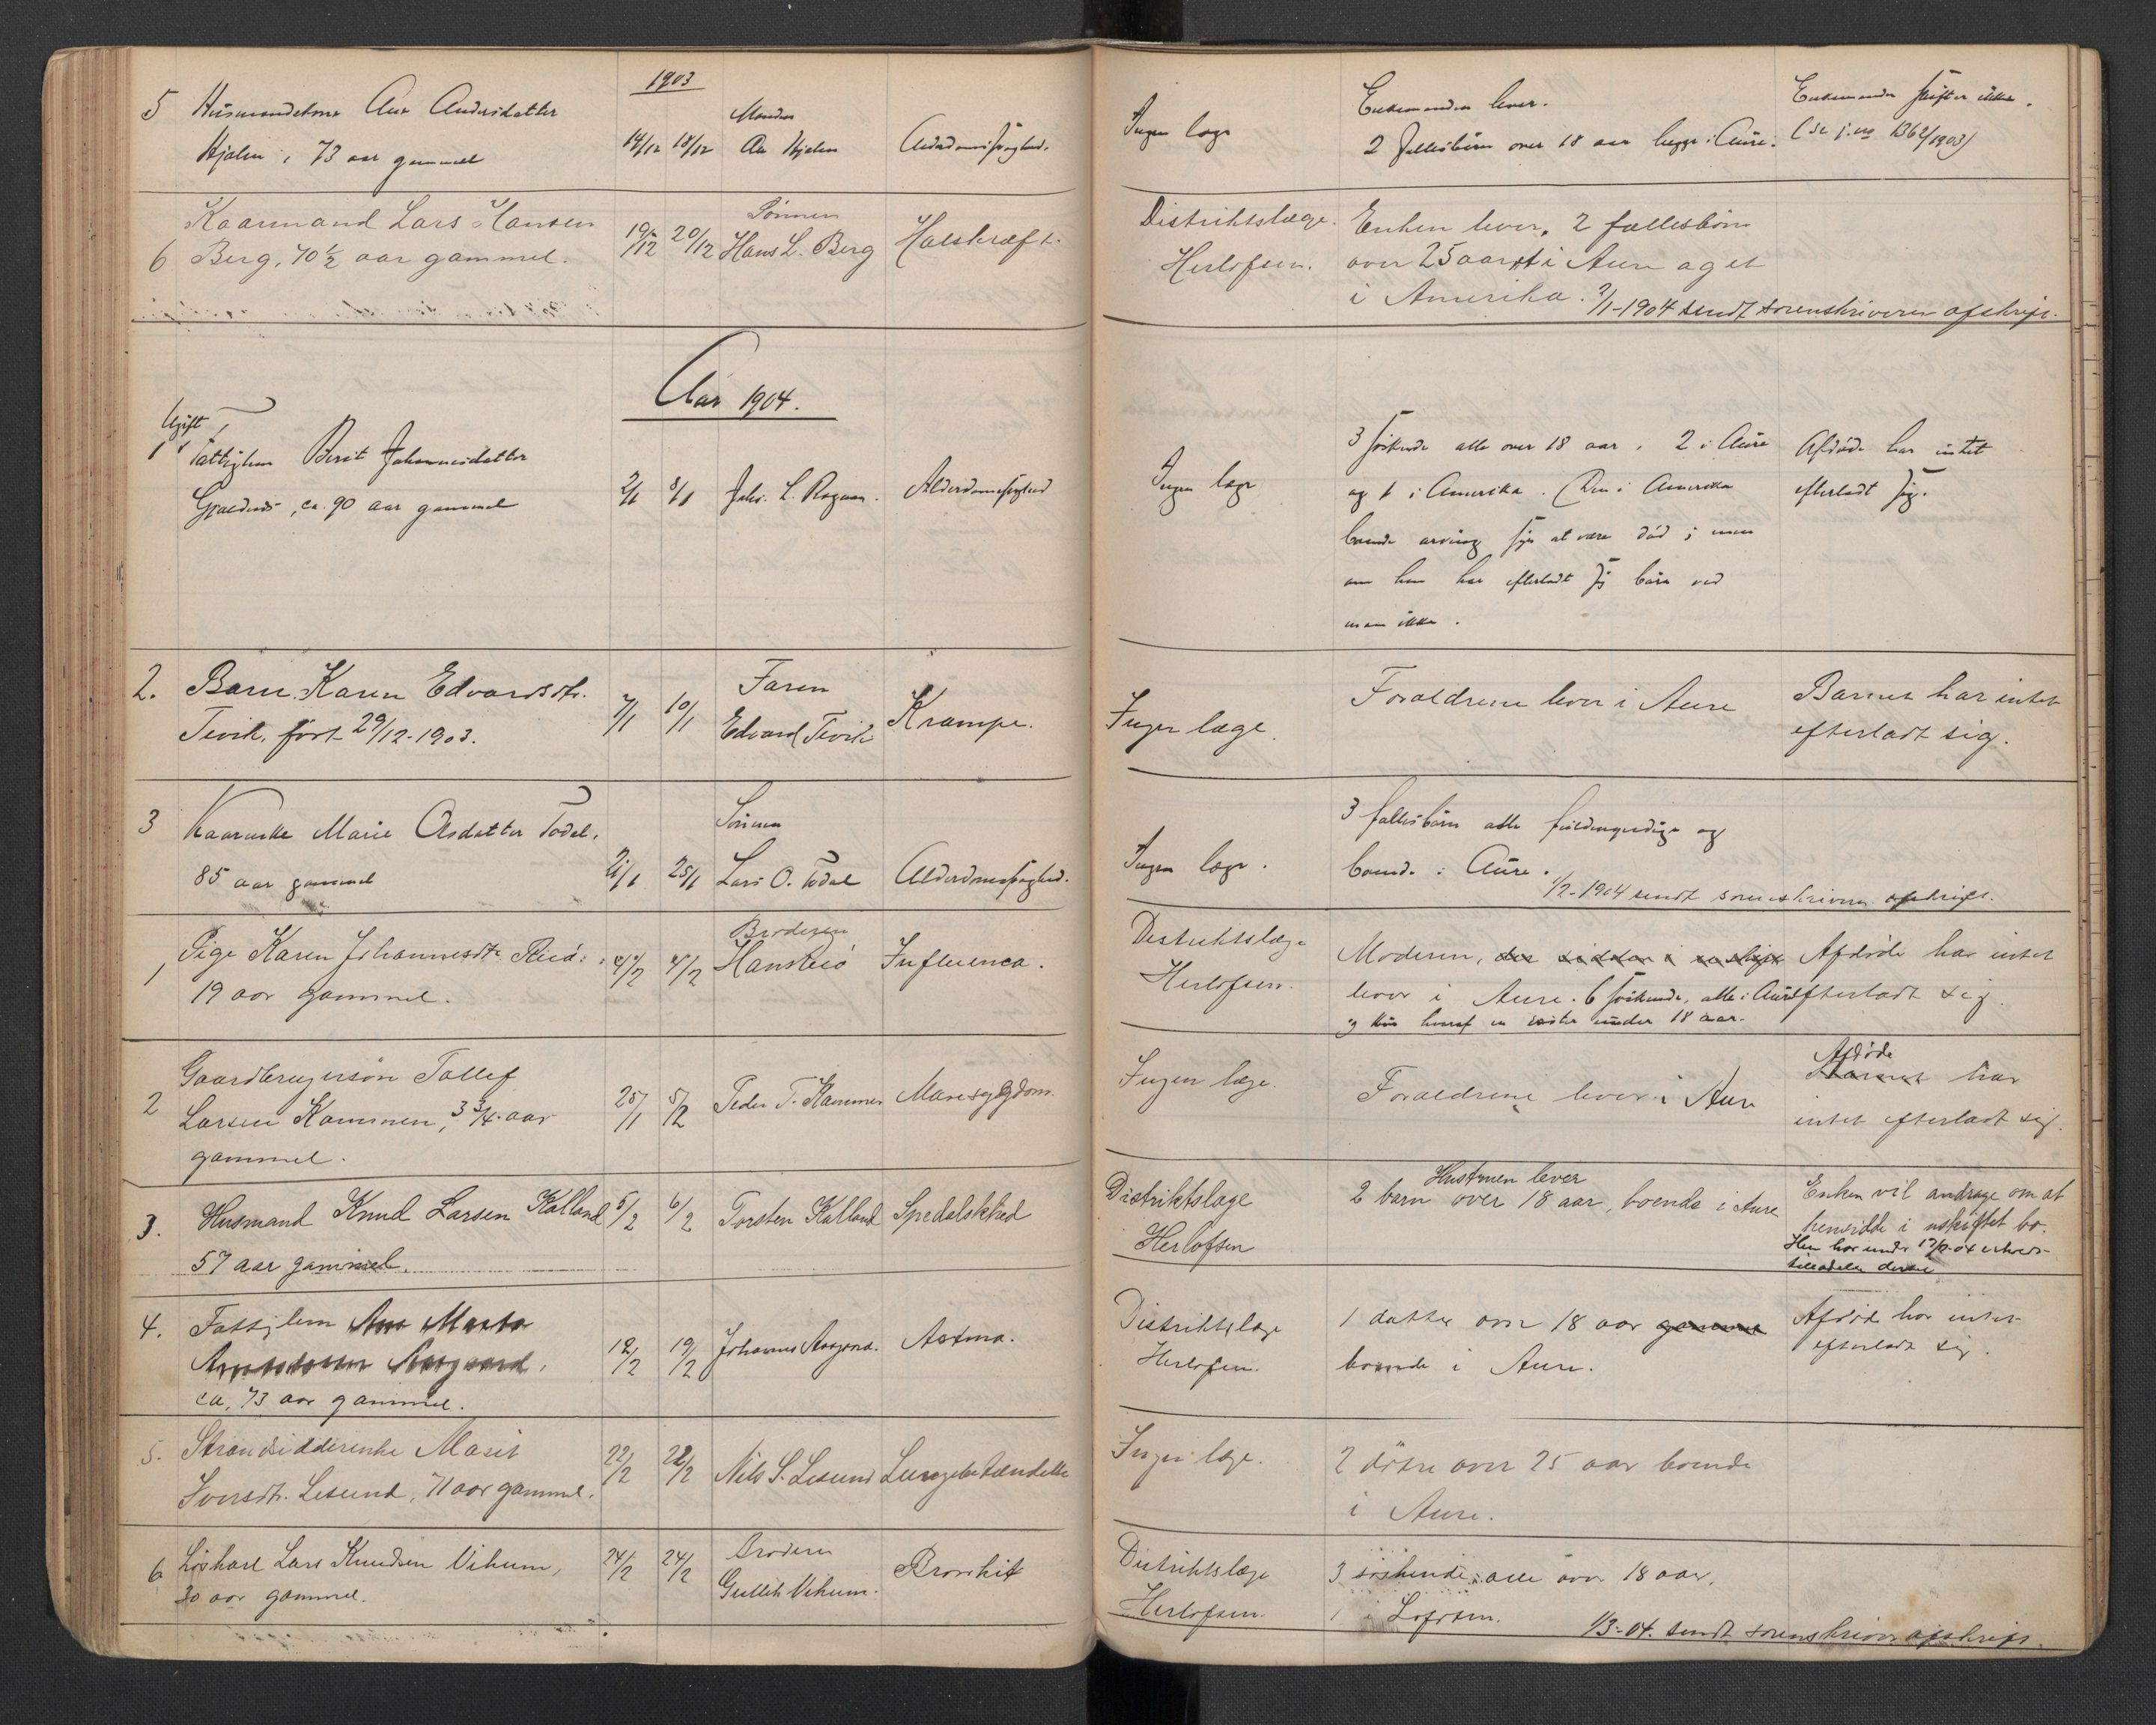 1903
5 Husmandskone Ane Andersdatter
Hjalen, 73 aar gammel
14/12 18/12
Manden
Hjalen
Alderdomssvaghed.
Ingen læge
Enkemanden lever.
2 fællesbörn over 18 aar begge i Aure.
Enkemanden skifter ikke.
(se j. no 1362/1903)
6 Kaarmand Lars Hansen
Berg, 70 1/2 aar gammel.
19/12 20/12
Sönnen
Hans L. Berg
Halskræft.
Distriktslæge
Herlofsen.
Enken lever, 2 fællesbörn
over 25 aar, i Aure og et
i Amerika. 2/1-1904 sendt sorenskriveren afskrift.
Aar 1904.
Ugift
1 Fattiglem Berit Johannesdatter
ca. 90 aar gammel
2/1 8/1
Johs. L. Rognan.
Alderdomssvaghed
Ingen læge
3 söskende alle over 18 aar, 2 i Aure
og 1 i Amerika. (Den i Amerika
boende arving siges at være död; men
om han har efterladt sig börn ved
man ikke.
Afdöde har intet
efterladt sig.
2. Barn Karen Edvardsdtr.
Tevik, födt 29/12-1903.
7/1 10/1
Faren
Edvard Tevik
Krampe.
Ingen læge.
Forældrene lever i Aure
Barnet har intet
efterladt sig.
3 Kaarenke Marie Olsdatter Todal,
85 aar gammel
21/1 25/1
Sönnen
Lars O. Todal
Alderdomssvaghed.
Ingen læge.
3 fællesbörn alle fuldmyndige og
boende i Aure.
1/2-1904 sendt sorenskriveren afskrift.
1, Pige Karen Johannesdtr.
19 aar gammel.
4/2 4/2
Broderen
Influenca.
Distriktslæge
Herlofsen.
Moderen, der sidder i uskiftet
lever i Aure. 6 söskende, alle i Aure
og hvoraf en söster under 18 aar.
Afdöde har intet
efterladt sig.
2 Gaardbrugersön Tollef
Larsen Kammen, 3 3/4 aar
gammel.
25/1 5/2
Peder T. Kammen
Mavesygdom.
Ingen læge.
Forældrene lever i Aure
Afdöde
Barnet har
intet efterladt sig.
3. Husmand Knud Larsen Kalland
57 aar gammel.
5/2 6/2
Torsten Kalland
Spedalskhed
Distriktslæge
Herlofsen
Hustruen lever
2 barn over 18 aar, boende i Aure
Enken vil andrage om at
hensidde i uskiftet bo.
Hun har under 17/2-04 erhvervet
tilladelse dertil
4. Fattiglem Ane Marta
Aasgaard,
ca. 73 aar gammel.
12/2 19/2
Johannes Aasgaard.
Astma.
Distriktslæge
Herlofsen.
1 datter over 18 aar gammel
boende i Aure.
Afdöde har intet
efterladt sig.
5. Strandsidderenke Marit
Iversdtr. Lesund, 71 aar gammel.
22/2 22/2
Nils S. Lesund
Lungebetændelse
Ingen læge.
2 dötre over 25 aar boende
i Aure.
6 Löskarl Lars Knudsen Vihum,
30 aar gammel.
24/2 24/2
Broderen
Gullik Vihum.
Bronkit
Distriktslæge
Herlofsen
3 söskende, alle over 18 aar,
1 i Lofoten.
1/3-04. sendt sorenskriveren afskrift.